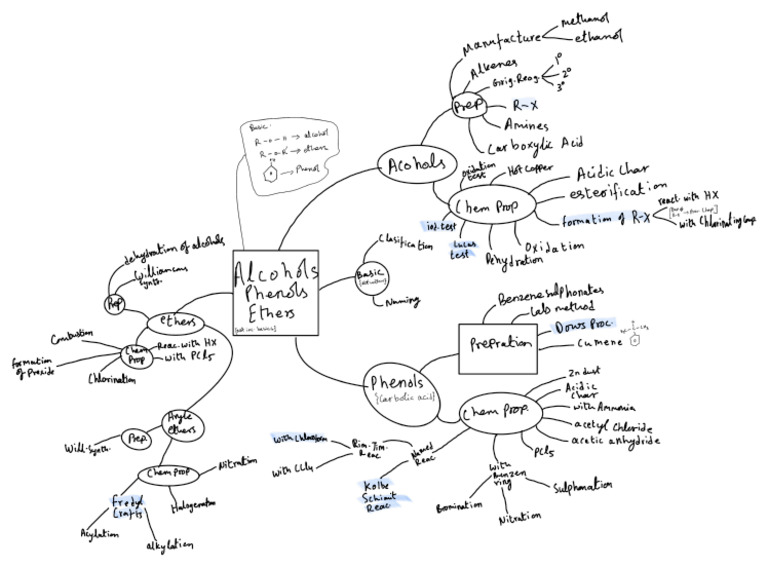 Manufacture
methanol
ethanol
Alkenes
Grig. Reag.
1°
2°
3°
Prep
R-X
Amines
Carboxylic Acid
Basic.
R-O-H → alcohol
→ ethers
→ Phenol
Acohols
Oxidation
test
Hot Copper
Acidic Char
esterification
Chem Prop
formation of R-X
react. with HX
with Chlorinating Comp
iod. test
Lucas
test
Dehydration
Oxidation
Alcohols
Phenols
Ethers
Clasification
Basic
Naming
dehydration of alcohols
Prep
ethers
Combustion
formation
of Proxide
Chem
Prop
Reac. with HX
with PCl5
Chlorination
Benzene sulphonates
Lab method
Dows Proc.
Cumene
Prepration
Phenols
(Carbolic acid)
Chem Prop.
Zn dust
Acidic
Char
with Ammonia
acetyl Chloride
acetic anhydride
PCl5
with
Benzen
ring
Sulphonation
Nitration
Bromination
Named
Reac.
Rim.-Tim.
Reac
With Chloroform
with CCl4
Kolbe
Schimit
Reac
ethers
Prep.
Will. Synth.
Chem prop
Nitration
Halogenation
Crafts
Acylation
alkylation